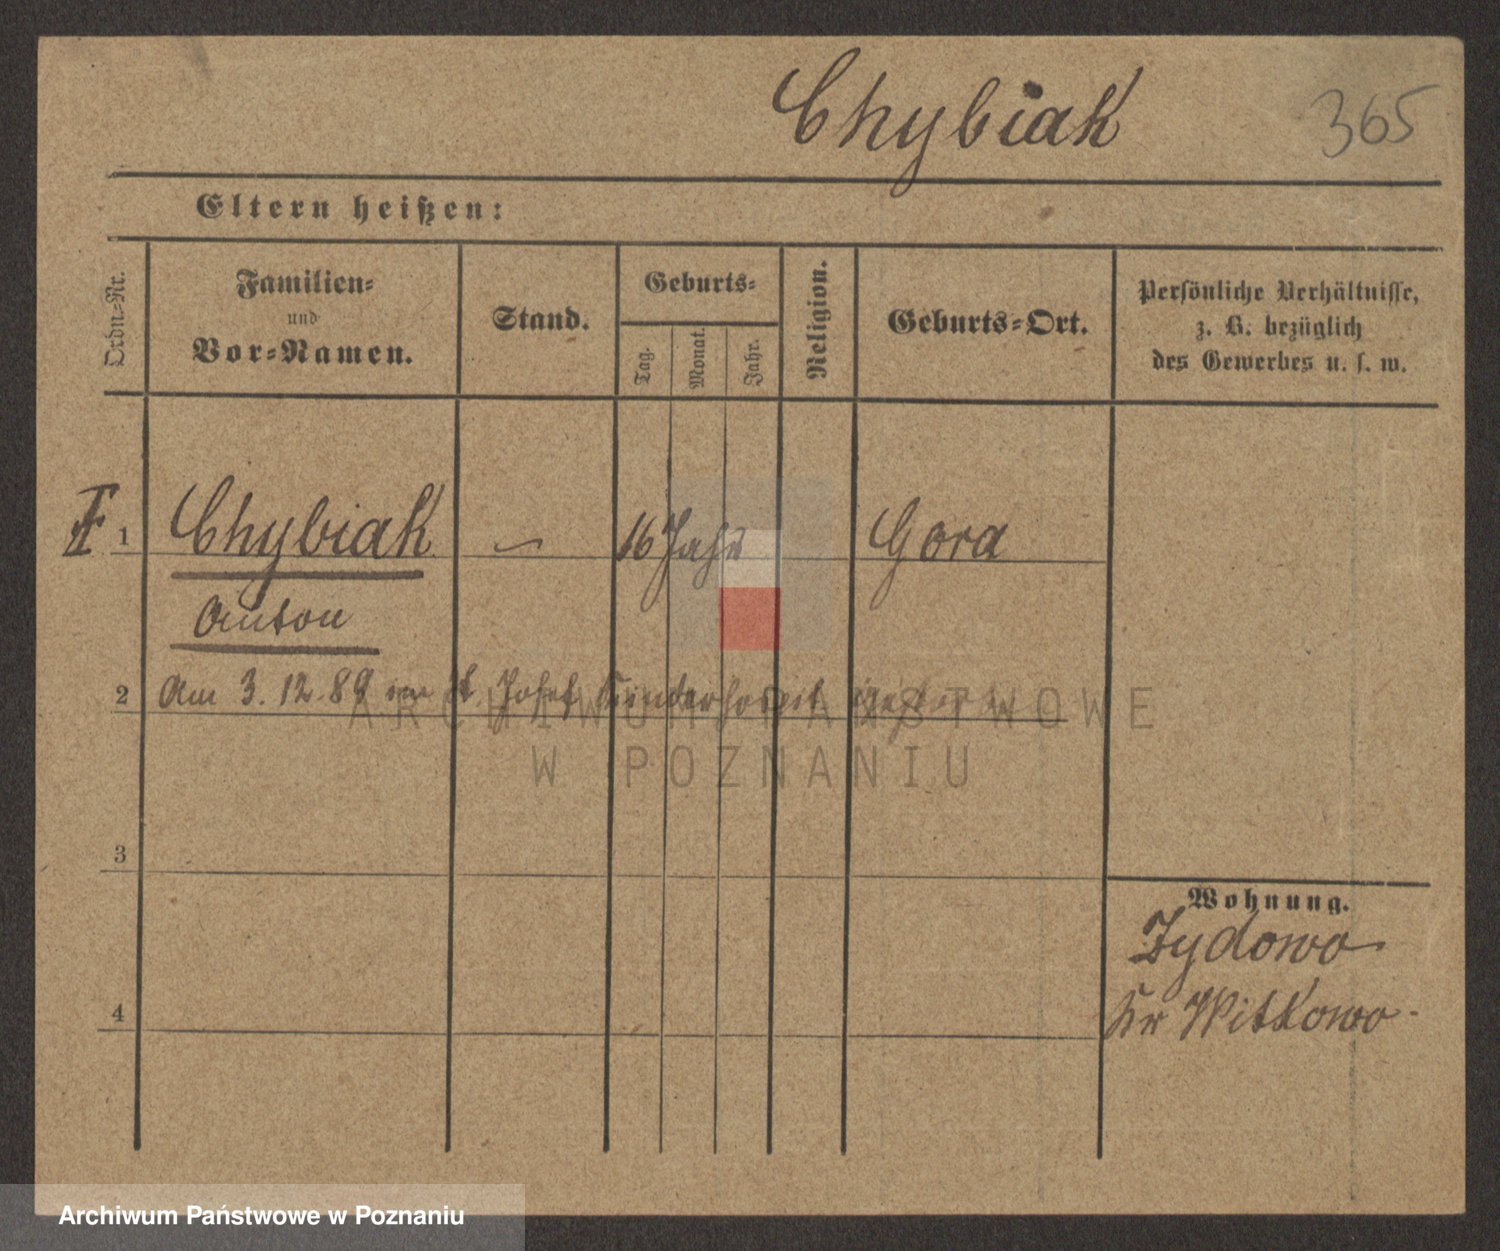 Chybiak 365
Eltern heißen:
Ordn=Nr.
Familien=
und
Vor=Namen.
Stand.
Geburts=
Tag.
Monat.
Jahr.
Religion.
Geburts=Ort.
Persönliche Verhältnisse,
z. B. bezüglich
des Gewerbes u. s. w.
1 Chybiak — 16 Jahr Gora
Anton
2 Am 3. 12. 89 im St. Josef Kinderhospit gestorben
ARCHIWUM PAŃSTWOWE
W POZNANIU
3
Wohnung.
Zydowo
4
Kr Witkowo.
Archiwum Państwowe w Poznaniu